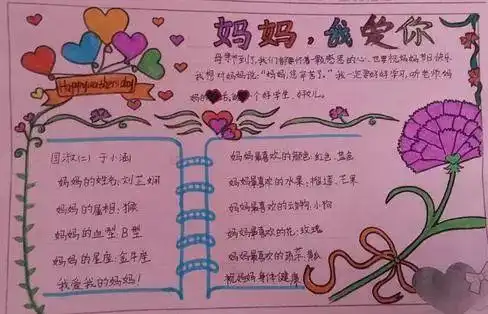 妈妈，我爱你
Happy mother's day!
母亲节到了，我们都要怀着一颗感恩的心，也要祝妈妈节日快乐
我想对妈妈说："妈妈，您辛苦了。"我一定要好好学习，听老师妈
妈的话，做个好学生、好女儿。
国淑(二) 于小涵
妈妈的姓名：刘芷娴
妈妈的属相：猴
妈妈的血型：B型
妈妈的星座：金牛座
我爱我的妈妈！
妈妈最喜欢的颜色：红色、
妈妈最喜欢的水果：榴莲、芒果
妈妈最喜欢的动物：小狗
妈妈最喜欢的花：玫瑰
妈妈最喜欢的蔬菜：黄瓜
祝妈妈身体健康